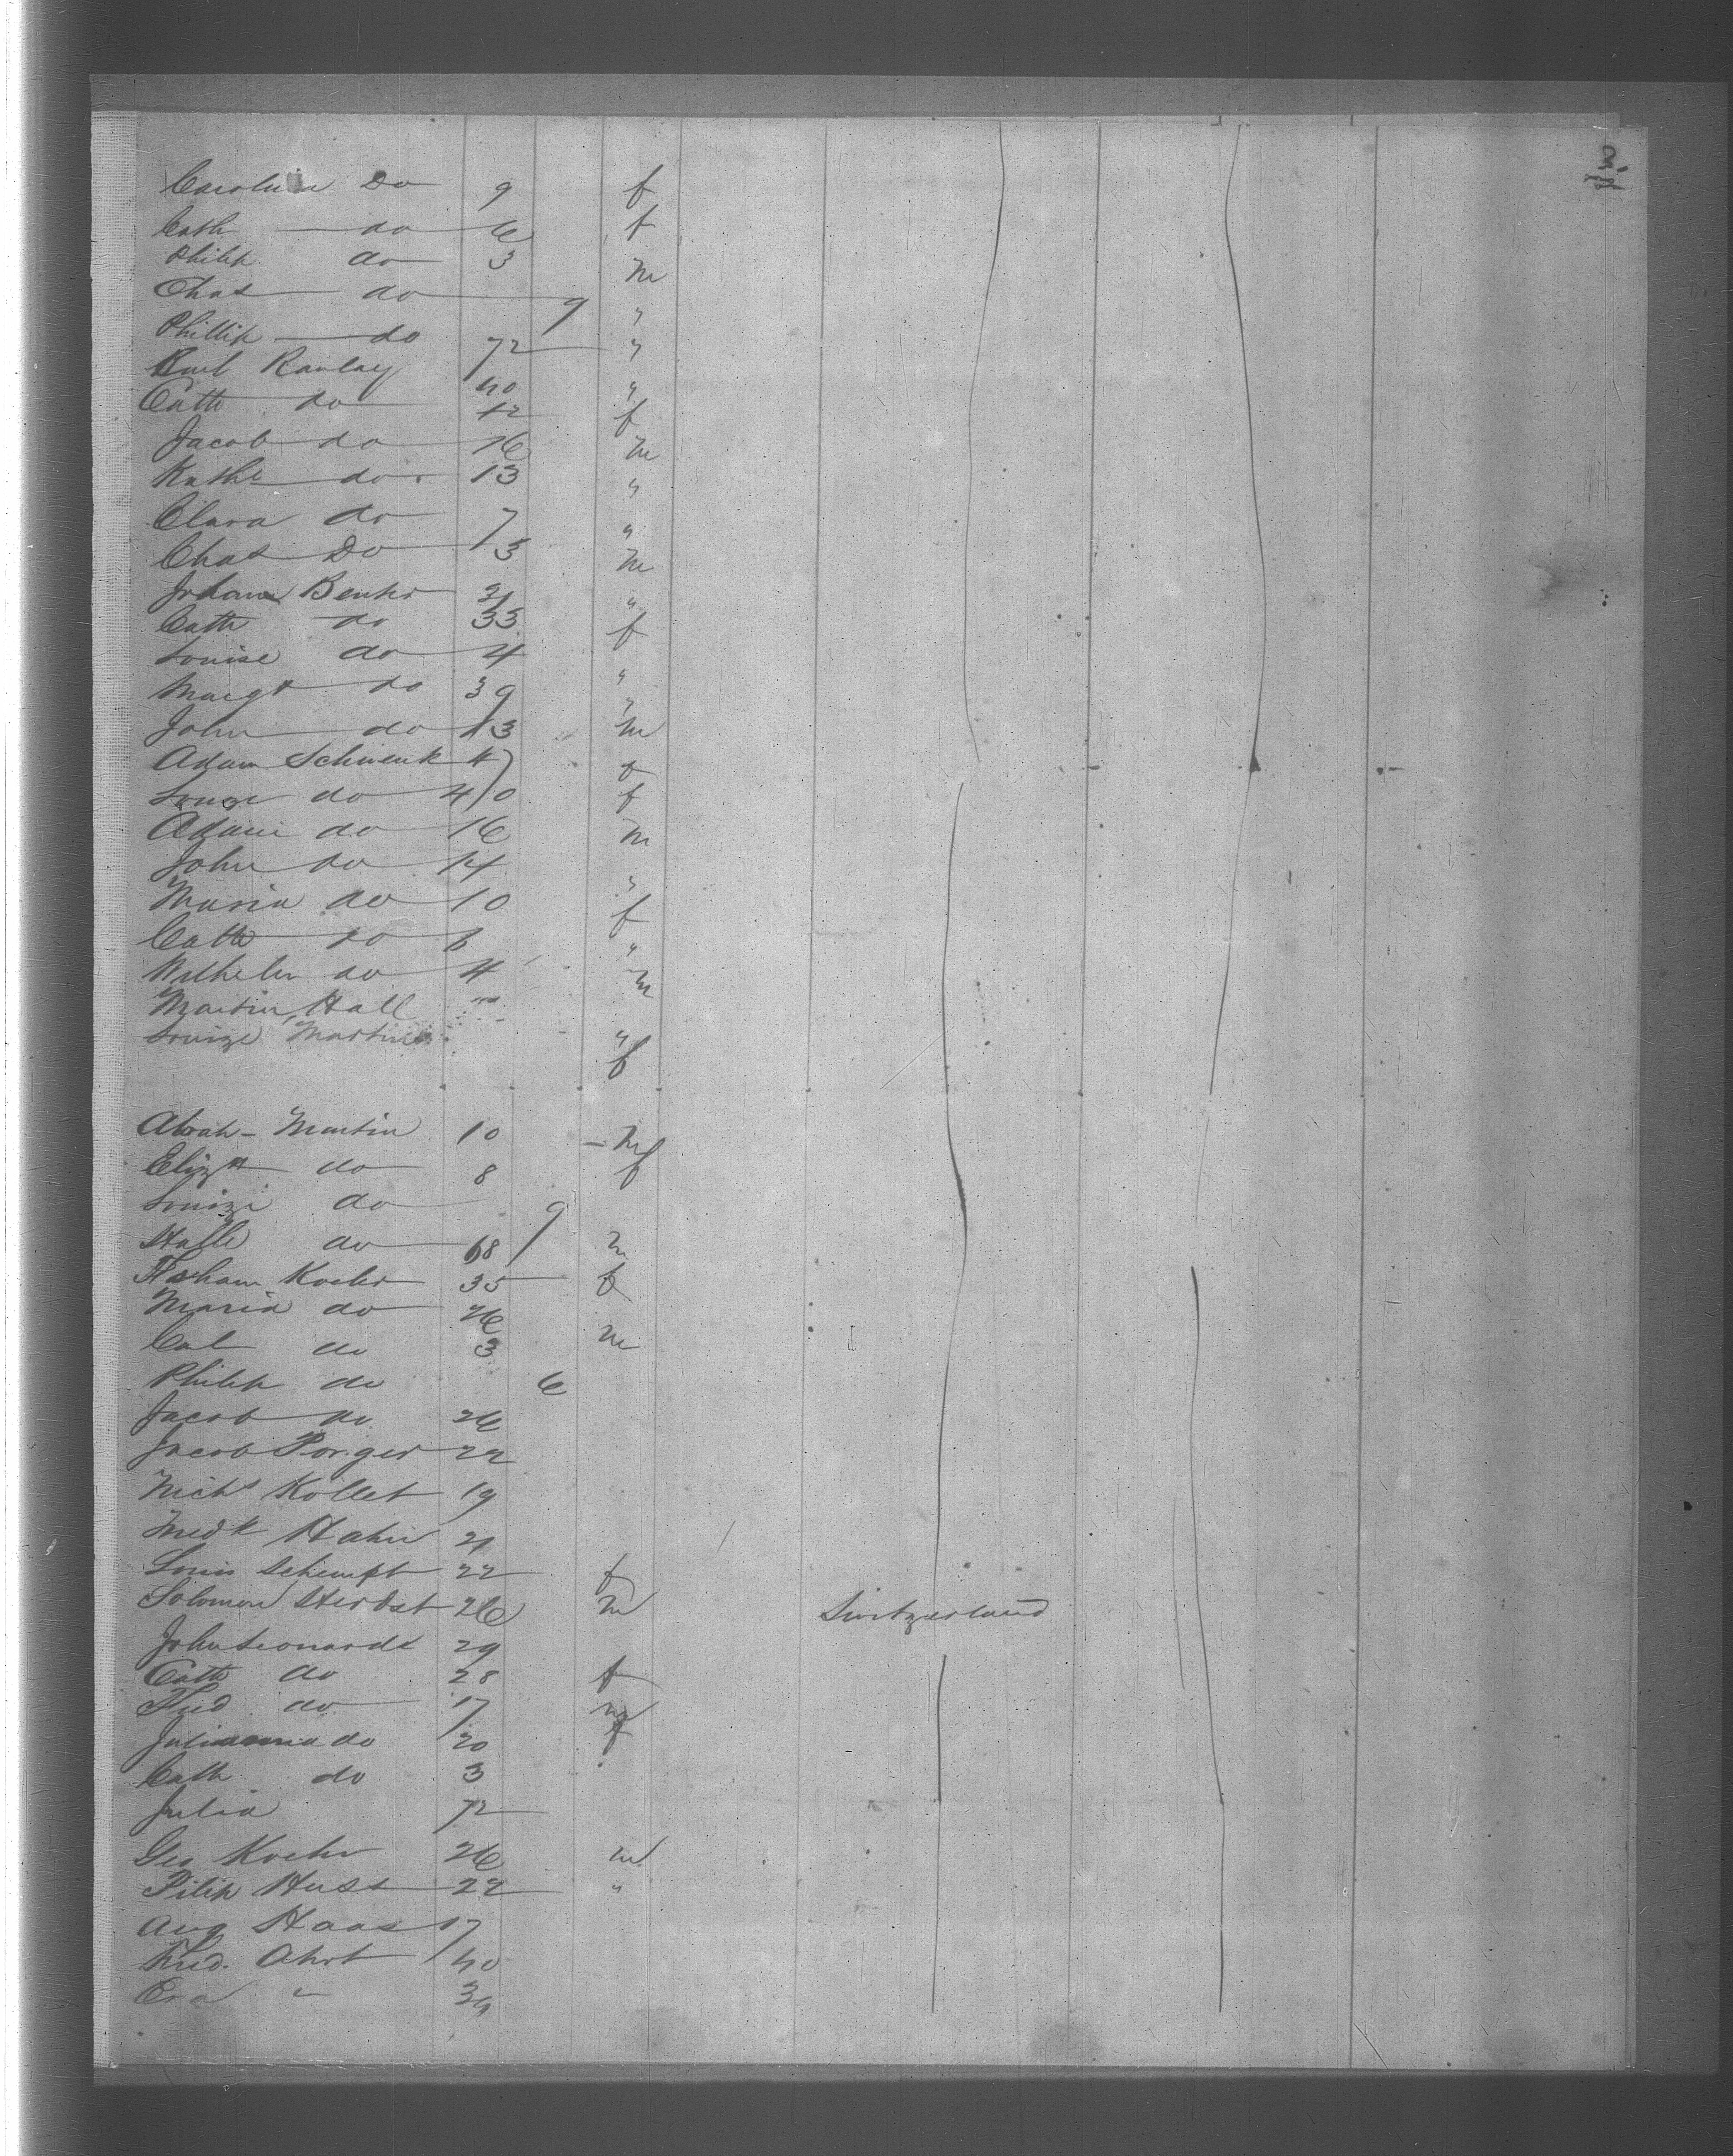 Caroline Do 9 f
Cath do 6 f
Philip do 3 m
Chas do 9 "
Phillip do 72 "
Karl Ranlay 40 "
Cath do 42 f
Jacob do 16 m
Kathe do. 13 "
Clara do 7 "
Chas Do 13 m
Johann Benker 31 "
Cath do 33 f
Louise do 4 "
Margt do 39 "
John do 13 m
Adam Schwenk 47 f
Louze do 40 f
Adam do 16 m
John do 14 "
Maria do 10 f
Cath do 6 "
Wilhelm do 4 m
Martin Hall "
Louize Martin f
Abrah - Martin 10 m
Elizth do 8 f
Louizi do 9
Halle do 68 m
Koehr 35 f
Maria do 26
Carl do 3 m
Philip do 6
Jacob do 26
Jacob Porger 22
Nichs Kollet 19
Fredk Hahn 21
Louis Schempt 22 f
Solomon Herbst 26 m Switzerland
John Leonards 29
Cath do 28 f
Fred do 17 m
Julianna do 20 f
Cath do 3 "
Julia 72
Geo Koehr 26 m
Pilip Huss 22 "
Aug Haas 17
Fred. Ahrt 40
Eva " 39